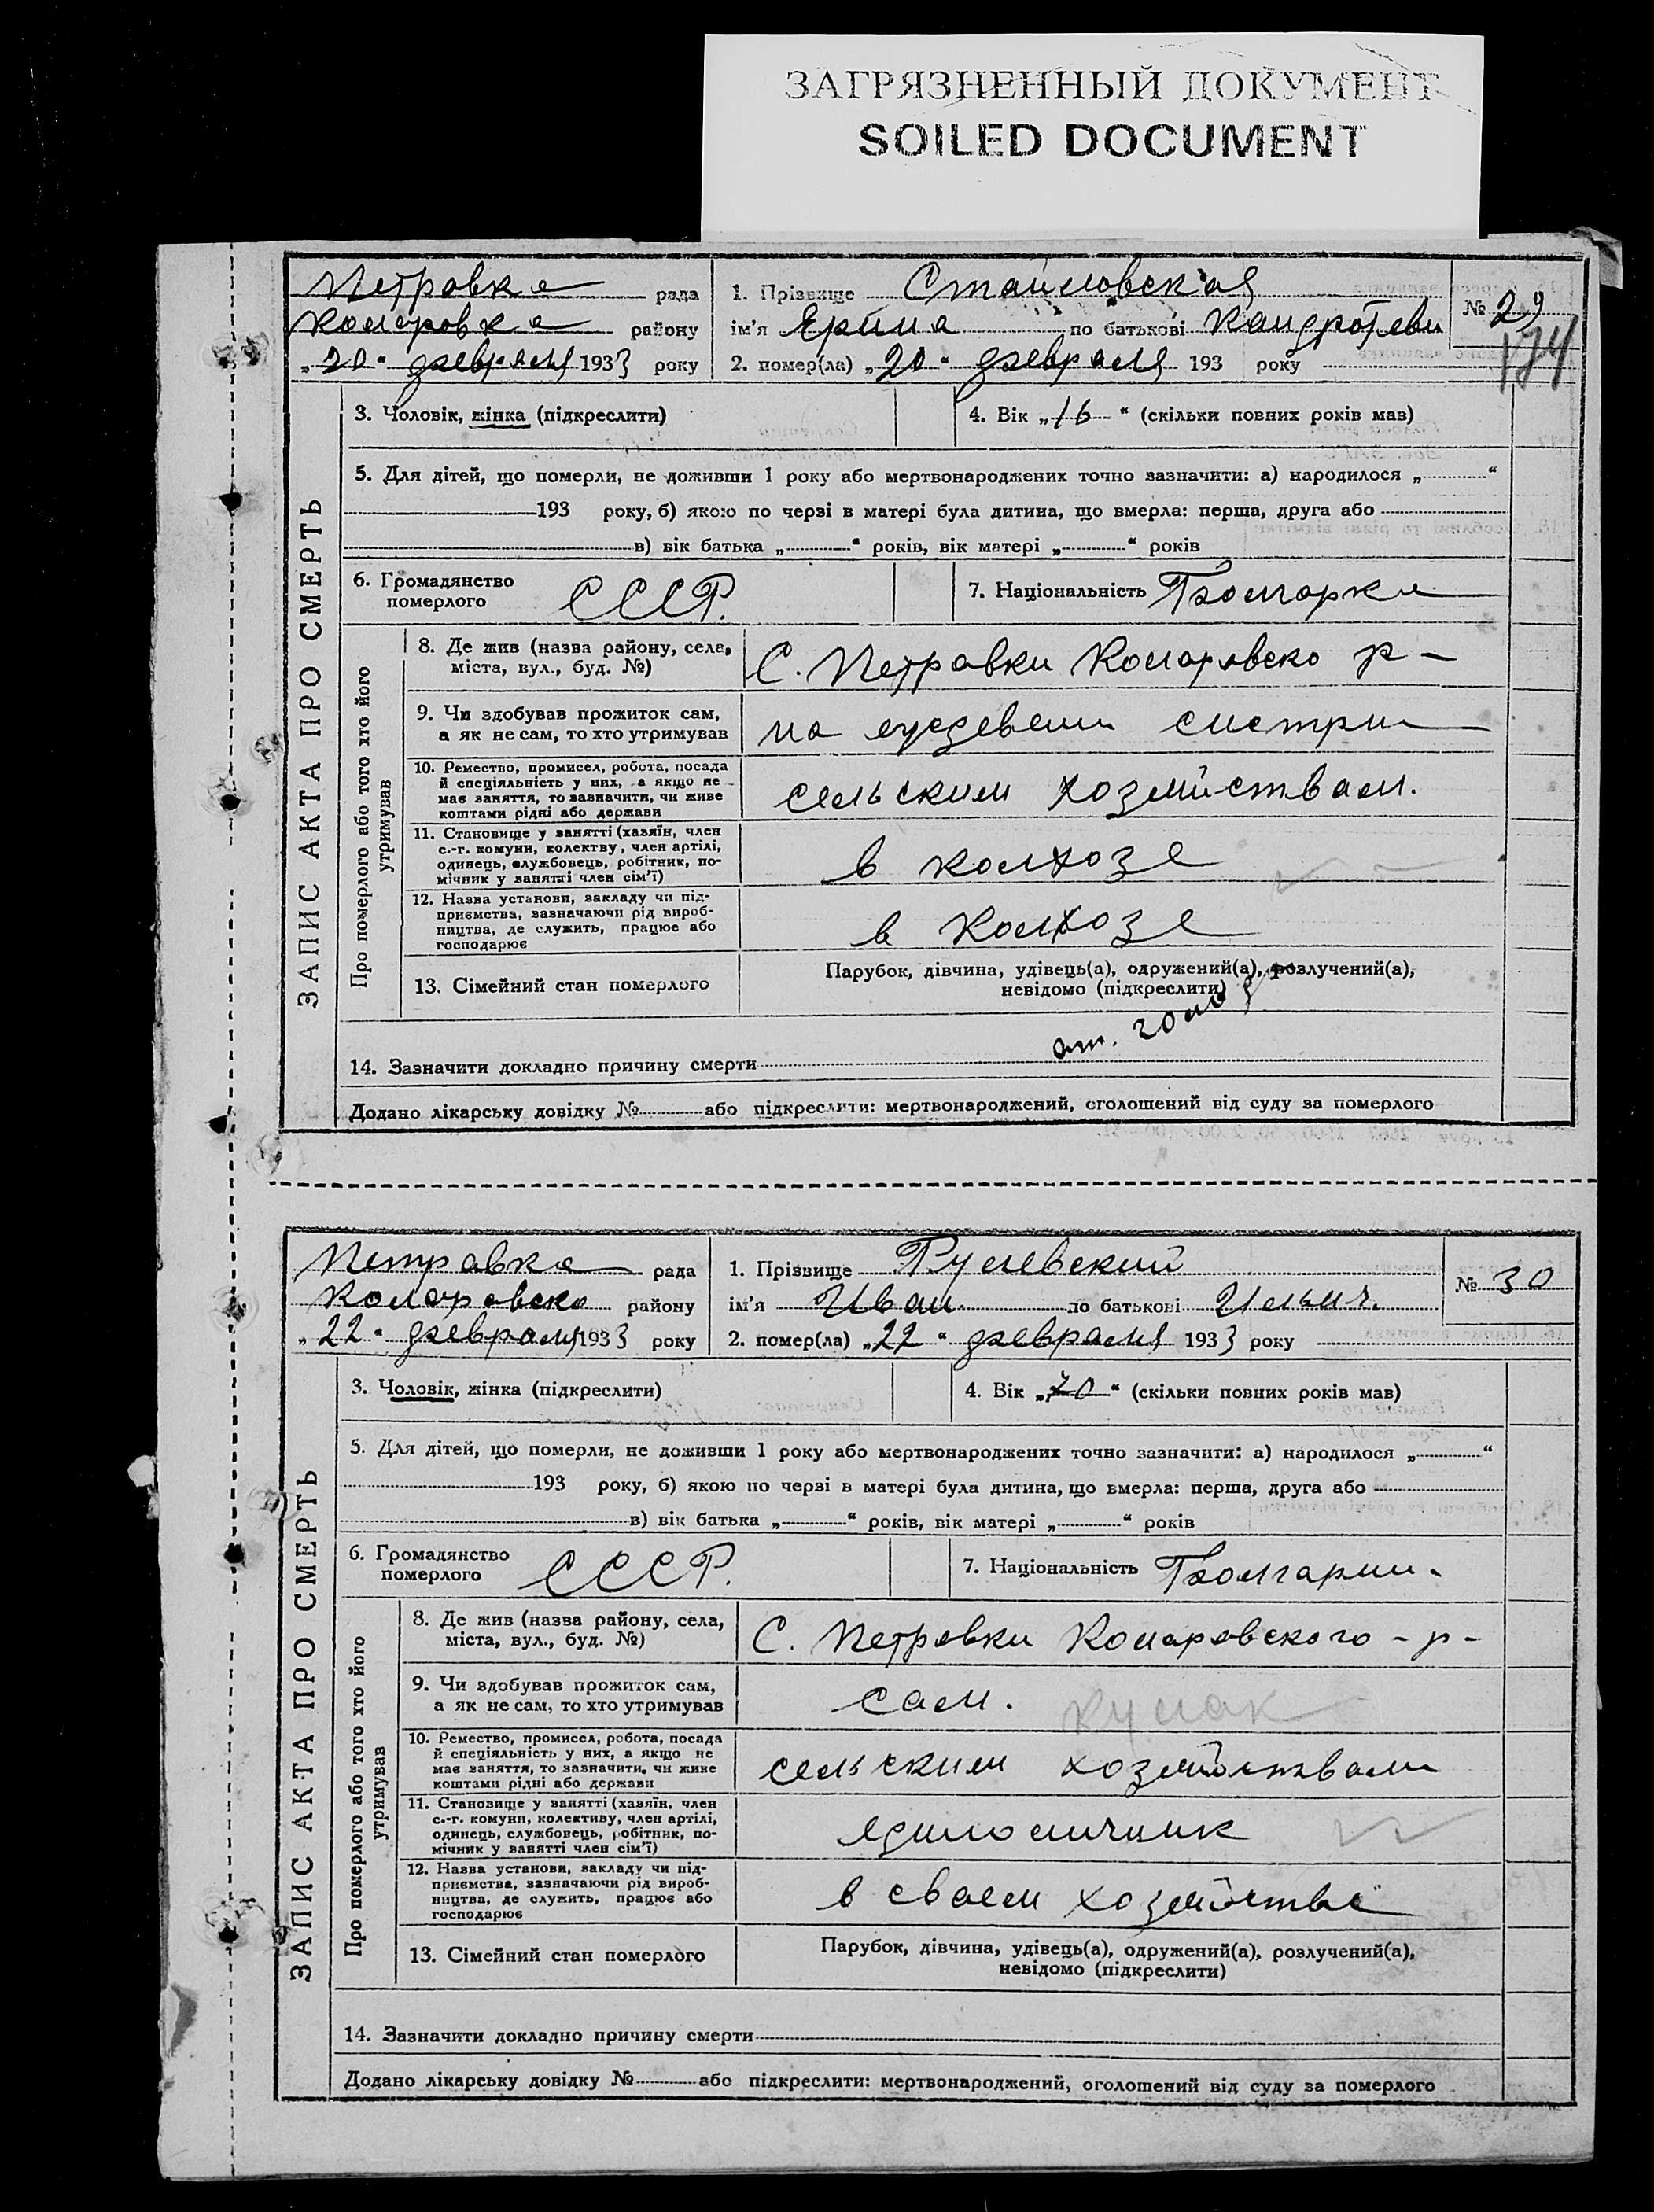 ЗАГРЯЗНЕННЫЙ ДОКУМЕНТ
SOILED DOCUMENT
Петровка рада
Комаровка району
„20“ февраля 1933 року
1. Прізвище Стаймовская
ім'я по батькові
2. помер(ла) „20“ февраля 193 року
№ 29
174
ЗАПИС АКТА ПРО СМЕРТЬ
3. Чоловік, жінка (підкреслити)
4. Вік „16“ (скільки повних років мав)
5. Для дітей, що померли, не доживши 1 року або мертвонароджених точно зазначити: а) народилося „ “
193 року, б) якою по черзі в матері була дитина, що вмерла: перша, друга або
в) вік батька „ “ років, вік матері „ “ років
6. Громадянство померлого СССР.
7. Національність Болгарка
Про померлого або того хто його утримував
8. Де жив (назва району, села,
міста, вул., буд. №)
С. Петровки р-
9. Чи здобував прожиток сам,
а як не сам, то хто утримував
на систри
10. Ремество, промисел, робота, посада
й спеціяльність у них, а якщо не
має заняття, то зазначити, чи живе
коштами рідні або держави
сельским хозяйствам.
11. Становище у занятті (хазяїн, член
с.-г. комуни, колектву, член артілі,
одинець, службовець, робітник, по-
мічник у занятті член сім'ї)
в колхозе
12. Назва установи, закладу чи під-
приємства, зазначаючи рід вироб-
ництва, де служить, працює або
господарює
в колхозе
13. Сімейний стан померлого
Парубок, дівчина, удівець(а), одружений(а), розлучений(а),
невідомо (підкреслити)
14. Зазначити докладно причину смерти
Додано лікарську довідку № або підкреслити: мертвонароджений, оголошений від суду за померлого
Петравка рада
району
„22“ февраля 1933 року
1. Прізвище Русевский
ім'я Иван. по батькові Ильич.
2. помер(ла) „22“ февраля 1933 року
№ 30
ЗАПИС АКТА ПРО СМЕРТЬ
3. Чоловік, жінка (підкреслити)
4. Вік „70“ (скільки повних років мав)
5. Для дітей, що померли, не доживши 1 року або мертвонароджених точно зазначити: а) народилося „ “
193 року, б) якою по черзі в матері була дитина, що вмерла: перша, друга або
в) вік батька „ “ років, вік матері „ “ років
6. Громадянство померлого СССР.
7. Національність Болгарин.
Про померлого або того хто його утримував
8. Де жив (назва району, села,
міста, вул., буд. №)
С. Петровки Комаровского - р -
9. Чи здобував прожиток сам,
а як не сам, то хто утримував
сам. кулак
10. Ремество, промисел, робота, посада
й спеціяльність у них, а якщо не
має заняття, то зазначити, чи живе
коштами рідні або держави
сельским хозяйствам
11. Становище у занятті (хазяїн, член
с.-г. комуни, колективу, член артілі,
одинець, службовець, робітник, по-
мічник у занятті член сім'ї)
единоличник
12. Назва установи, закладу чи під-
приємства, зазначаючи рід вироб-
ництва, де служить, працює або
господарює
в сваем хозяйстве
13. Сімейний стан померлого
Парубок, дівчина, удівець(а), одружений(а), розлучений(а),
невідомо (підкреслити)
14. Зазначити докладно причину смерти
Додано лікарську довідку № або підкреслити: мертвонароджений, оголошений від суду за померлого